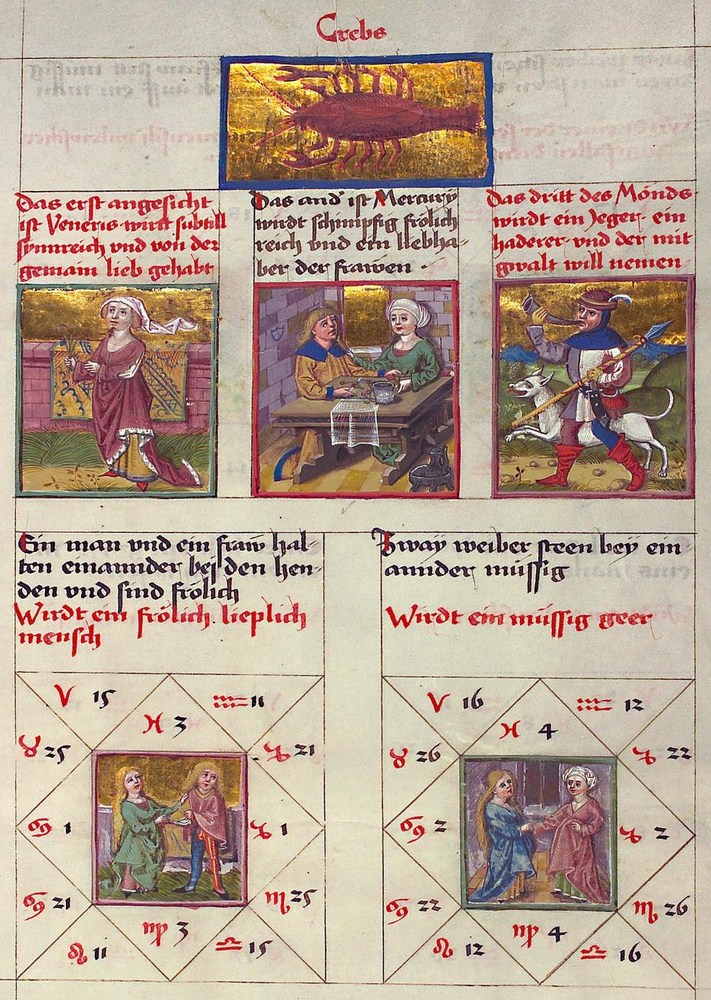 Crebs
Das erst angesicht
ist Veneris wirt subtill
synnreich vnd von der
gemain lieb gehabt
Das and' ist Mercury
wirdt schimpfig frölich
reich vnd ein liebha-
ber der frawen ·
Das dritt des Monds·
wirdt ein Jeger· ein
haderer· vnd der mit
gwalt will nemen
Ein man vnd ein fraw hal-
ten einannder bej den hen-
den vnd sind frölich
Wirdt ein frölich lieplich
mensch
Zway weiber steen bey ein
annder müssig
Wirdt ein müssig geer
♈ 15
♒ 11
♓ 3
♉ 25
♑ 21
♋ 1
♑ 1
♋ 21
♏ 25
♍ 3
♌ 11
♎ 15
♈ 16
♒ 12
♓ 4
♉ 26
♑ 22
♋ 2
♑ 2
♋ 22
♏ 26
♍ 4
♌ 12
♎ 16